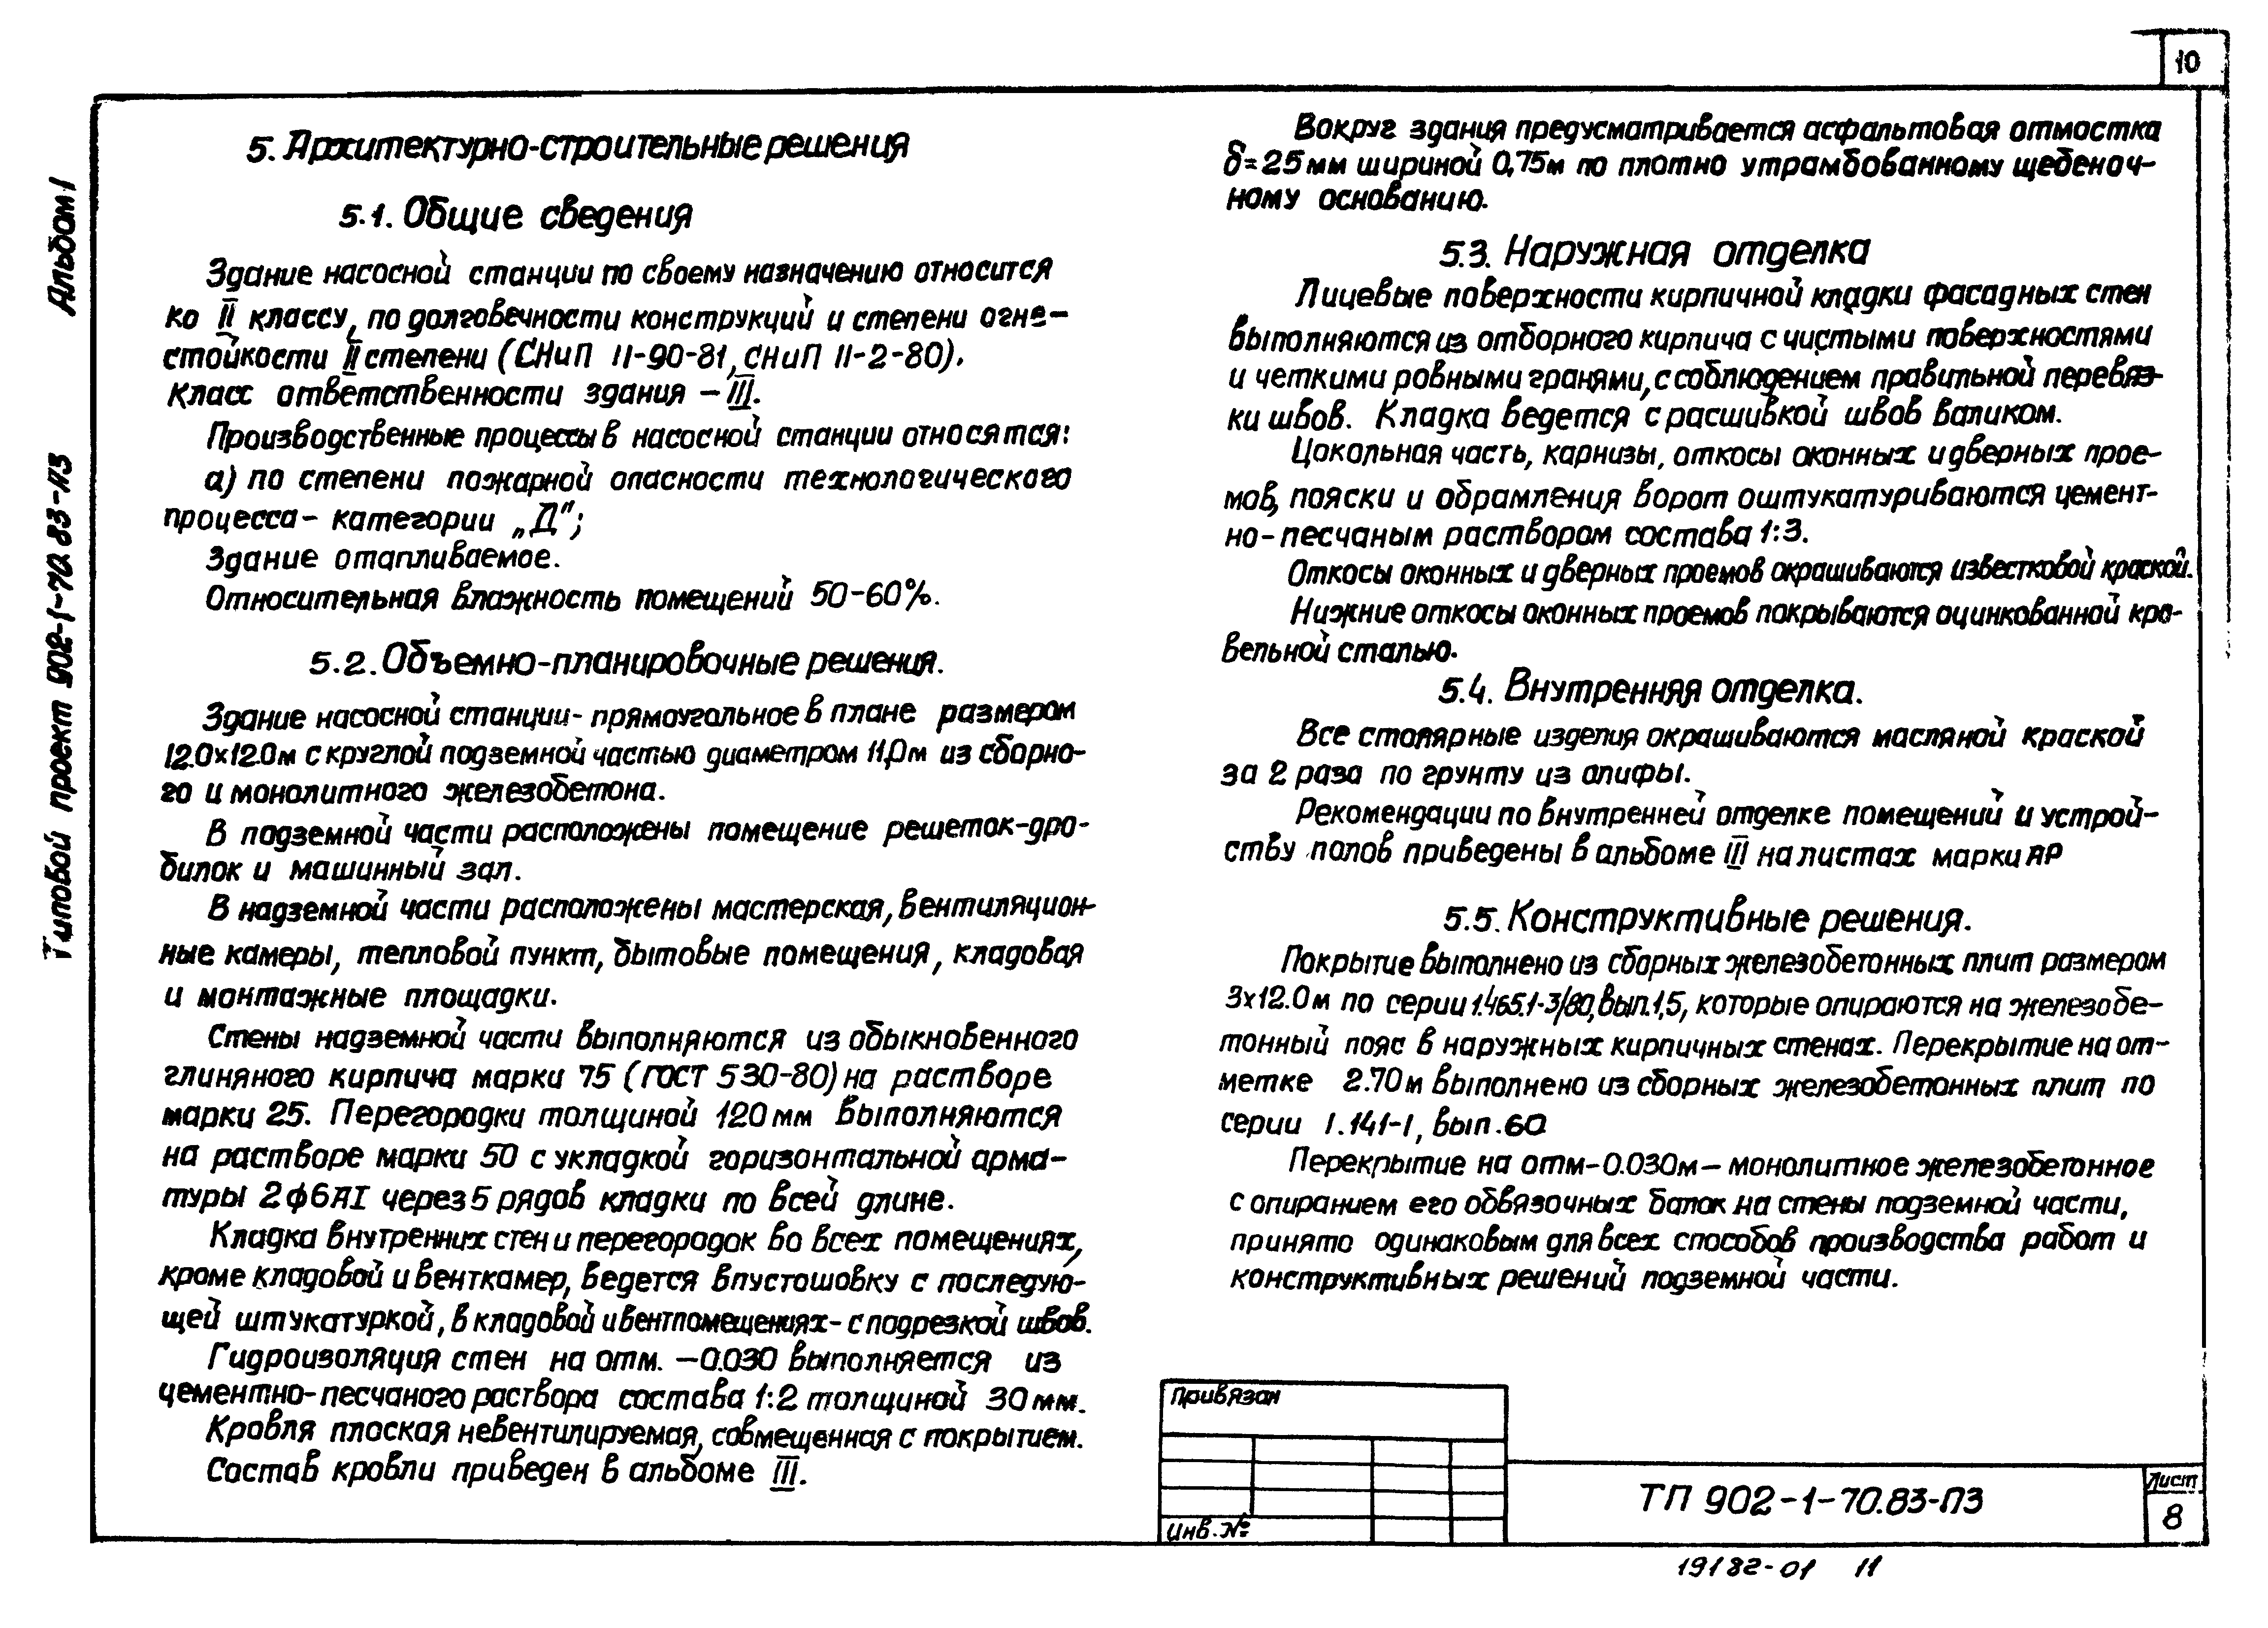 10
Альбом I
Типовой проект 902-1-70.83-ПЗ
5. Архитектурно-строительные решения
5.1. Общие сведения
Здание насосной станции по своему назначению относится
ко II классу, по долговечности конструкций и степени огне-
стойкости II степени (СНиП II-90-81, СНиП II-2-80).
Класс ответственности здания – III.
Производственные процессы в насосной станции относятся:
а) по степени пожарной опасности технологического
процесса – категории „Д“;
Здание отапливаемое.
Относительная влажность помещений 50-60%.
5.2. Объемно-планировочные решения.
Здание насосной станции - прямоугольное в плане размером
12.0х12.0м с круглой подземной частью диаметром 11.0м из сборно-
го и монолитного железобетона.
В подземной части расположены помещение решеток-дро-
билок и машинный зал.
В надземной части расположены мастерская, вентиляцион-
ные камеры, тепловой пункт, бытовые помещения, кладовая
и монтажные площадки.
Стены надземной части выполняются из обыкновенного
глиняного кирпича марки 75 (ГОСТ 530-80) на растворе
марки 25. Перегородки толщиной 120 мм выполняются
на растворе марки 50 с укладкой горизонтальной арма-
туры 2ф6АI через 5 рядов кладки по всей длине.
Кладка внутренних стен и перегородок во всех помещениях,
кроме кладовой и венткамер, ведется впустошовку с последую-
щей штукатуркой, в кладовой и вентпомещениях - с подрезкой швов.
Гидроизоляция стен на отм. –0.030 выполняется из
цементно-песчаного раствора состава 1:2 толщиной 30 мм.
Кровля плоская невентилируемая, совмещенная с покрытием.
Состав кровли приведен в альбоме III.
Вокруг здания предусматривается асфальтовая отмостка
δ=25мм шириной 0,75м по плотно утрамбованному щебеноч-
ному основанию.
5.3. Наружная отделка
Лицевые поверхности кирпичной кладки фасадных стен
выполняются из отборного кирпича с чистыми поверхностями
и четкими ровными гранями, с соблюдением правильной перевяз-
ки швов. Кладка ведется с расшивкой швов валиком.
Цокольная часть, карнизы, откосы оконных и дверных прое-
мов, пояски и обрамления ворот оштукатуриваются цемент-
но-песчаным раствором состава 1:3.
Откосы оконных и дверных проемов окрашиваются известковой краской.
Нижние откосы оконных проемов покрываются оцинкованной кро-
вельной сталью.
5.4. Внутренняя отделка.
Все столярные изделия окрашиваются масляной краской
за 2 раза по грунту из олифы.
Рекомендации по внутренней отделке помещений и устрой-
ству полов приведены в альбоме III на листах марки АР
5.5. Конструктивные решения.
Покрытие выполнено из сборных железобетонных плит размером
3х12.0м по серии 1.465.1-3/80, вып.1,5, которые опираются на железобе-
тонный пояс в наружных кирпичных стенах. Перекрытие на от-
метке 2.70м выполнено из сборных железобетонных плит по
серии 1.141-1, вып.60
Перекрытие на отм-0.030м – монолитное железобетонное
с опиранием его обвязочных балок на стены подземной части,
принято одинаковым для всех способов производства работ и
конструктивных решений подземной части.
Привязан
Инв. №
ТП 902-1-70.83-ПЗ
Лист
8
19182-01 11